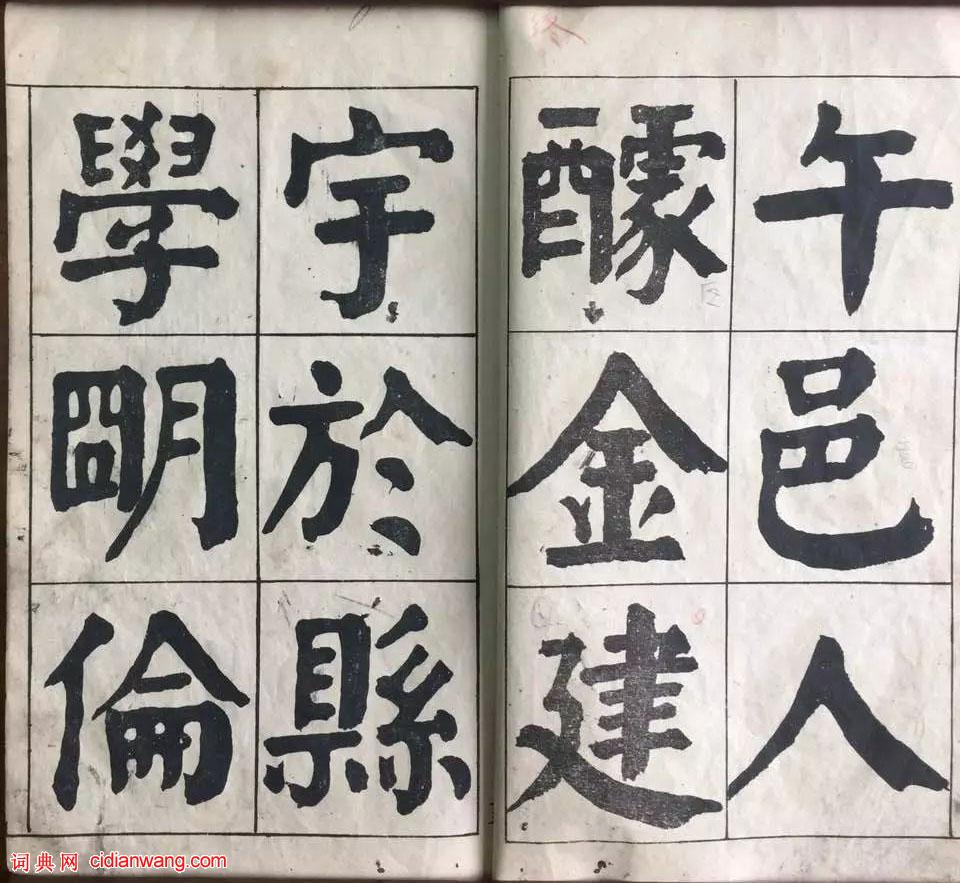 午邑人
醵金建
宇於縣
學明倫
词典网 cidianwang.com